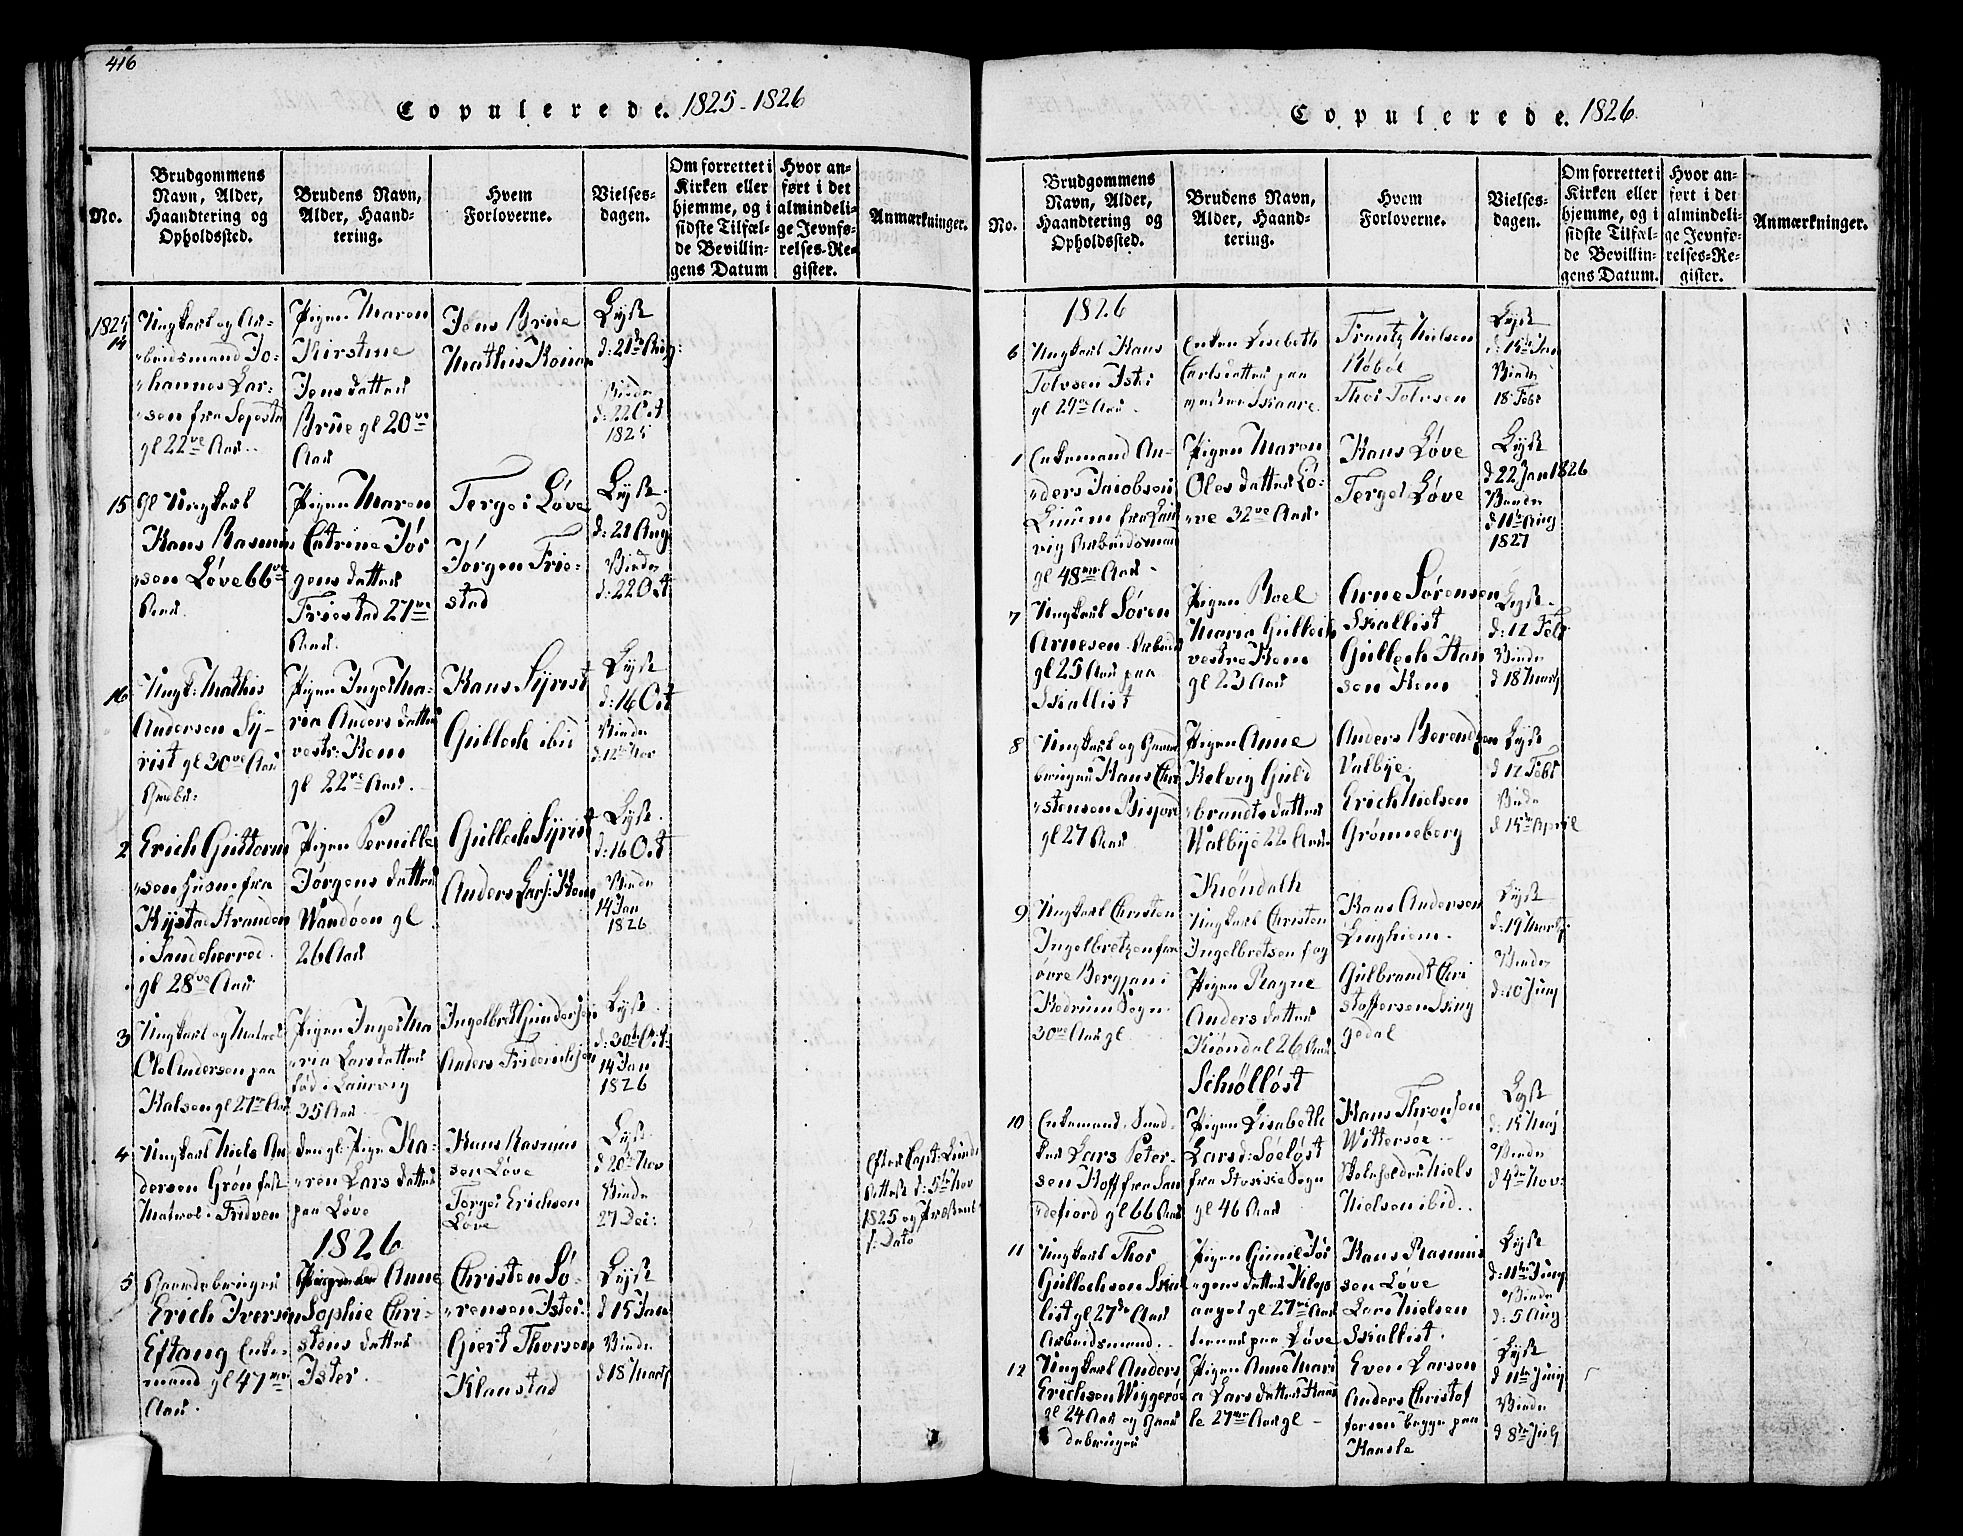 416
Copulerede. 1825-1826
No.
Brudgommens
Navn, Alder,
Haandtering og
Opholdssted.
Brudens Navn,
Alder, Haand-
tering.
Hvem
Forloverne.
Vielses-
dagen.
Om forrettet i
Kirken eller
hjemme, og i
sidste Tilfæl-
de Bevillin-
gens Datum
Hvor an-
ført i det
almindeli-
ge Jevnfø-
relses-Re-
gister.
Anmærkninger.
1825
14
Ungkarl og Ar-
beidsmand Jo-
hannes Lar-
sen fra
gl 22ve Aar.
Pigen Maren
Kirstine
Jens datter
Brue gl 20ve
Aar
Jens Brue
Mathis
Lyst
d: 21de Aug:
Viede
d: 22 Oct
1825
15
Gl Ungkarl
Hans Rasmus
sen Løve 66ve
Aar.
Pigen Maren
Catrine Jør
gens datter
Friestad 27ve
Aar.
Terge i Løve
Jørgen Frie-
stad
Lyst.
d: 21 Aug
Viede
d: 22 Oct
16
Ungk: Mathis
Andersen Sy-
rist gl 30ve Aar
Pigen Inger Ma-
ria Anders datter
vestr: Hem
gl 22ve Aar.
Hans Syrist
Gullech ibid
Lyst
d: 16 Oct
Viede
d: 12te Nov
2
Erich Guttorm
sen fra
Stranden
i Sandeherred.
gl 28ve Aar
Pigen Pernille
Jørgens datter
Wandøen gl
26 Aar
Gullech Syrist
Anders Lars: Hem
Lyst.
d: 16 Oct
Viede
14 Jan
1826
3
Ungkarl og Matros
Ole Andersen paa
Halsen gl 27ve Aar
Pigen Inger Ma
ria Lars datter
fød i Laurvig
35 Aar
Ingelbret Gundersen
Anders Friderichsen
Lyst.
d: 30te Oct:
14 Jan
1826
4
Ungkarl Niels An
dersen Grøn fast
Matros i Fridvern
den gl: Pige Ka-
ren Lars datter
paa Løve
Hans Rasmus
sen Løve
Torger Erichsen
Løve
Lyst.
d 20te Nov
Viede
27 Dec:
Efter Capt: Lunds
Attest d: 5te Nov
1825 og
f: Dato
1826
5
Gaardebruger
Erich Iversen
Eftang Enke-
mand gl 47ve
Aar.
Anne
Sophie Chri-
stens datter
Ister.
Christen Sø-
rensen Ister.
Giert Thorsen
Klanstad
Lyst
d 15 Jan
Viede
d 18 Marts
Copulerede. 1826
No.
Brudgommens
Navn, Alder,
Haandtering og
Opholdssted.
Brudens Navn,
Alder, Haand-
tering.
Hvem
Forloverne.
Vielses-
dagen.
Om forrettet i
Kirken eller
hjemme, og i
sidste Tilfæl-
de Bevillin-
gens Datum.
Hvor an-
ført i det
almindeli-
ge Jevnfø-
relses-Re-
gister.
Anmærkninger.
1826
6
Ungkarl Hans
Tolvsen Ister
gl 29ve Aar.
Enken Lisebeth
Carls datter paa
Skaare.
Frantz Nielsen
Røbøl
Thor Tolvsen
Lyst
d: 15te Jan
Viede
18 Febr
1
Enkemand An-
ders Jacobsen
fra Laur
vig Arbeidsman
gl 48ve Aar
Pigen Maren
Oles datter Lø-
ve 32ve Aar.
Hans Løve
Terger Løve
Lyst
d 22 Jan 1826
Viede
d 11te Aug
1827
7
Ungkarl Søren
Arnesen
gl 25 Aar paa
Skallist
Pigen Boel
Maria Gullechs
vestre Hem
gl 23 Aar
Arne Sørensen
Skallist
Gullech Han
sen Hem
Lyst.
d: 12 Febr
Viede
d 18 Marts
8
Ungkarl og Gaard
bruger Hans Chri
stensen Bisjord
gl 27 Aar
Pigen Anne
Helvig Guld
brandts datter
Walbye 22 Aar
Anders Berendsen
Valbye.
Erich Nielsen
Grønneberg
Lyst
d 12 Febr
Viede
d 15te April
9
Ungkarl Christen
Ingelbretsen fra
øvre Bergan i
Hedrum Sogn.
30ve Aar gl
Kiøndalh
Ungkarl Christen
Ingelbretsen f og
Pigen Ragne
Anders datter
Kiøndal 26 Aar
Hans Andersen
Linghiem.
Gulbrandt Chri
stoffersen
gedal
Lyst
d: 19 Marts
Viede
d: 10 Juny
10
Enkemand
Lars Peter-
sen Hoff fra San
defiord gl 66 Aar
Schølløst
Pigen Lisabeth
Lars d: Søeløst
fra Stokke Sogn
gl 46 Aar
Hans Thronsen
Wittersøe
Niels
Nielsen ibid.
Lyst
d: 15 Maj
Viede
d 4de Nov:
11
Ungkarl Thor
Gullechsen Skal
list gl 27de Aar
Arbeidsmand.
Pigen Gunil Jør
gens datter Klep
anger gl 27ve Aar
paa Løve
Hans Rasmus
sen Løve
Lars Nielsen
Skallist.
Lyst
d: 11te Juny
Viede
d: 5 Aug
12
Ungkarl Anders
Erichsen Wiggersøe
gl 24 Aar og Gaar
debruger
Pigen Anne Mari
a Lars datter Haas
le 27ve Aar gl
Even Larsen
Anders Christof
fersen begge paa
Haasle
Lyst
d 11te Juny
Viede
d 8de July